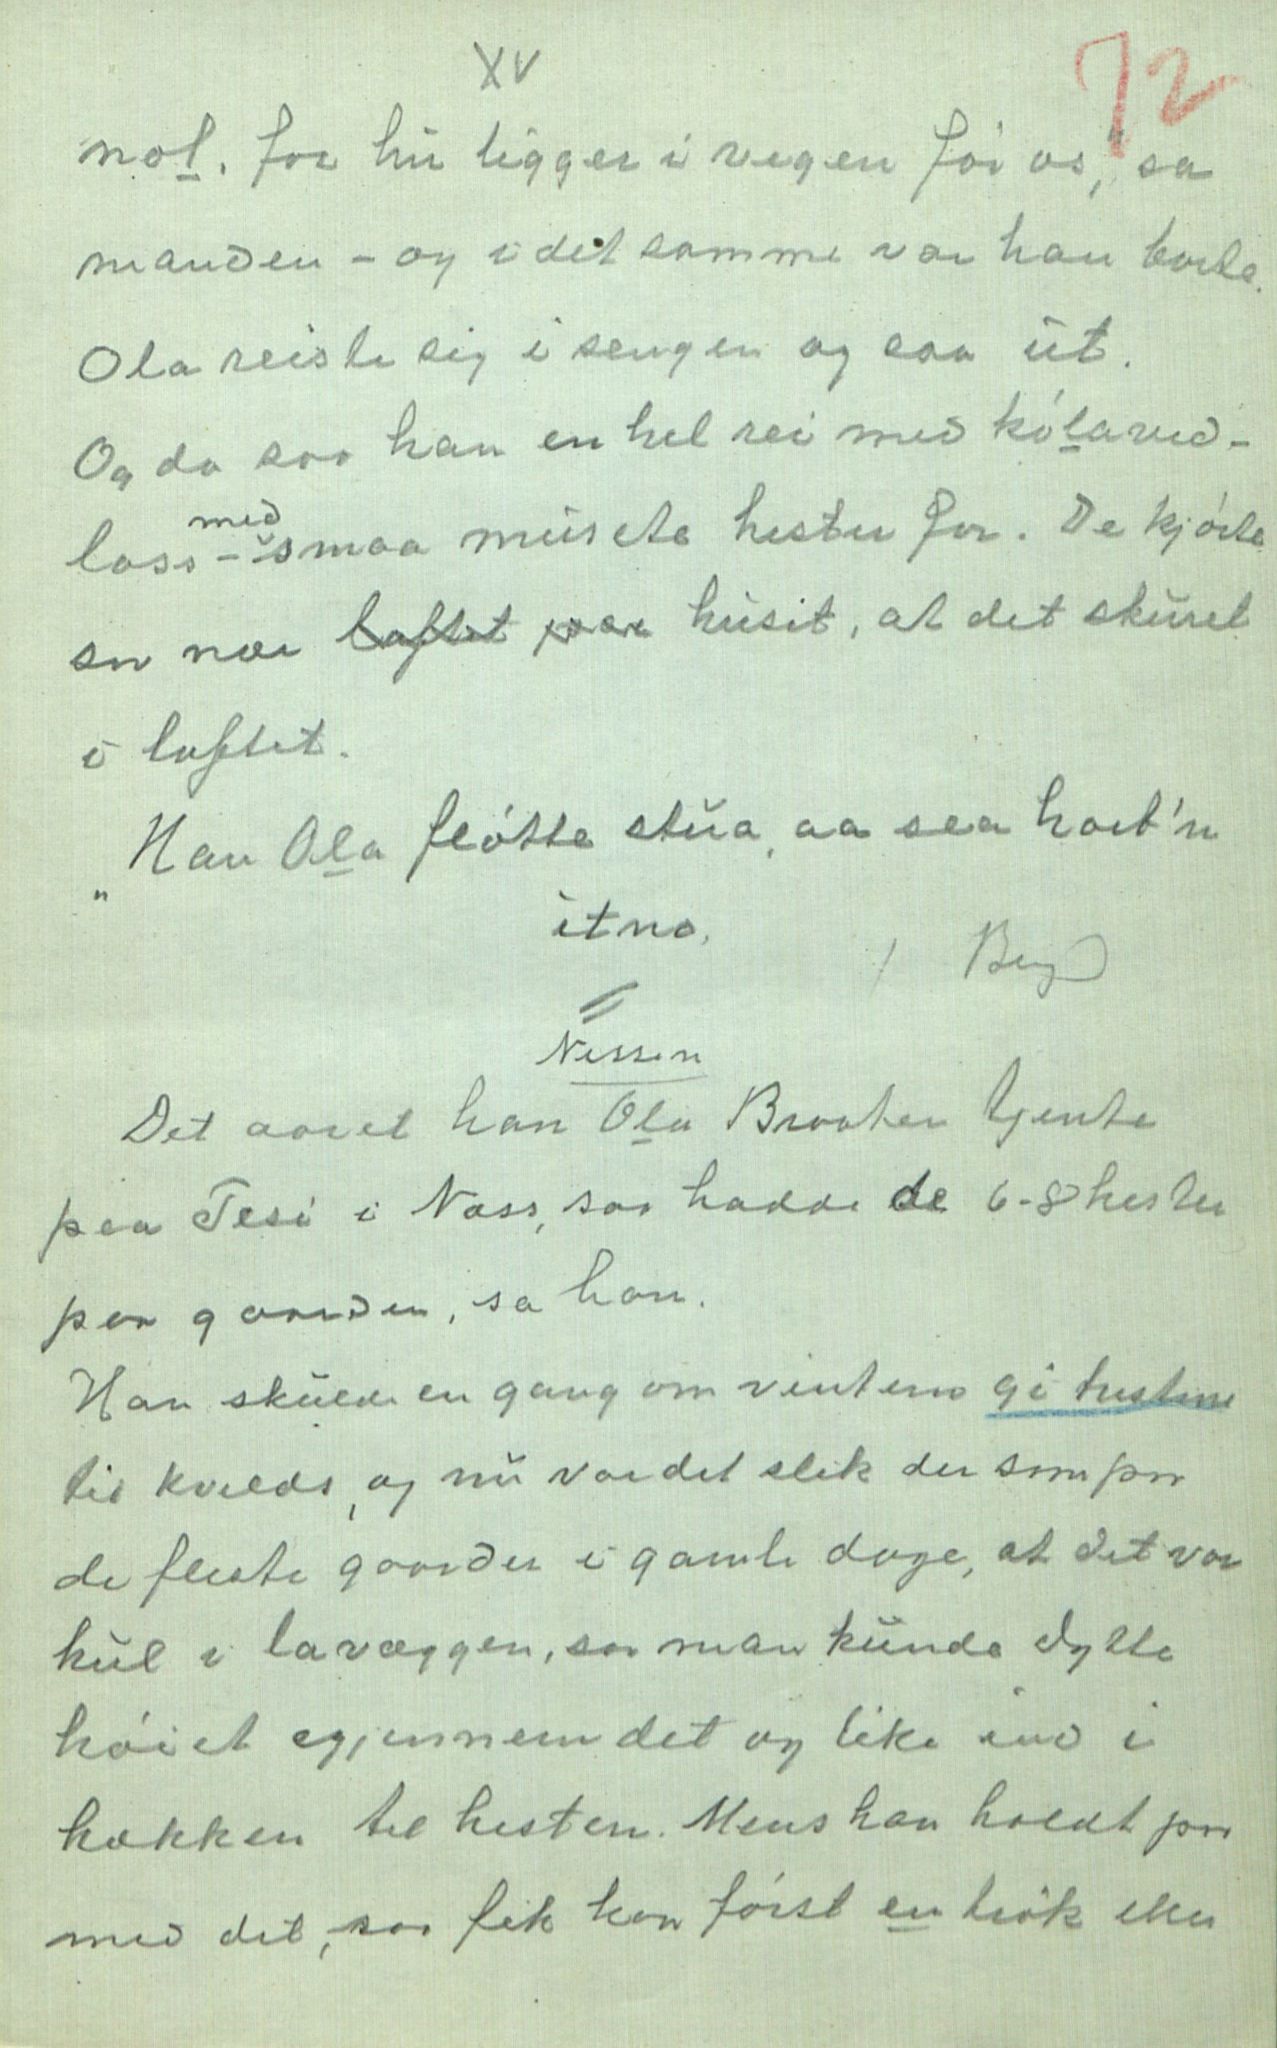 XV
72
nol. for hu ligger i vegen før os," sa
manden - og i det samme var han borte.
Ola reiste sig i sengen og saa ut.
Og da saa han en hel rei med kølaved-
lass - med smaa musete hester for. De kjørte
saa nær loftet paa huset, at det skuret
i loftet.
"Han Ola fløtte stua, aa sea hort'n
itno.
/ Berg
Nissen
Det aaret han Ola Braaten tjente
paa Tesi i Nass, saa hadde de 6-8 hester
paa gaarden, sa han.
Han skulde en gang om vinteren gi hestene
til kvelds, og nu var det slik der som paa
de fleste gaarder i gamle dage, at det var
hul i lavæggen, saa man kunde dytte
høiet igjennem det og like ind i
hækken til hesten. Mens han holdt paa
med det, saa fik han først en trøk eller